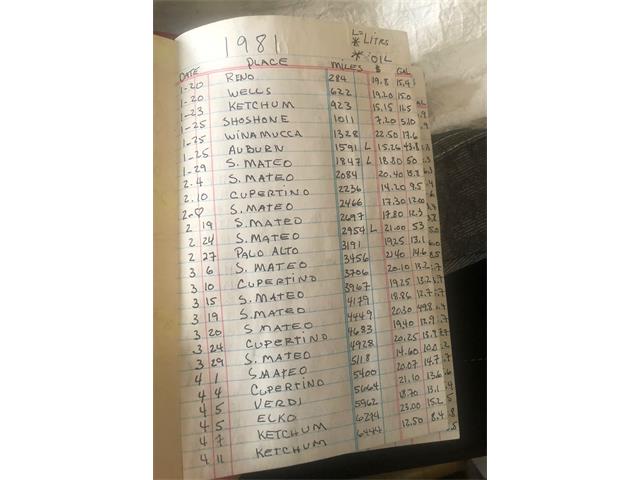 1981
L=LITRS
* OIL
DATE PLACE MILES $ GAL
1-20 RENO 284 19.8 15.4
1-20 WELLS 622 19.20 15.0
1-23 KETCHUM 923 15.15 11.5
1-25 SHOSHONE 1011 7.20 5.10
1-25 WINAMUCCA 1328 22.50 17.6
1-25 AUBURN 1591 L 15.26 43.8
1-29 S. MATEO 1847 L 18.80 50
2-4 S. MATEO 2084 20.40 15.8
2.10 CUPERTINO 2236 14.20 9.5
2-♡ S. MATEO 2466 17.30 12.00
2 19 S. MATEO 2697 17.80 12.3
2 24 S. MATEO 2954 L 21.00 53
2 27 PALO ALTO 3191 19.25 13.1
3 6 S. MATEO 3456 21.40 14.6
3 10 CUPERTINO 3706 20.10 13.2
3 15 S. MATEO 3967 19.25 13.2
3 19 S. MATEO 4179 18.86 12.7
3 20 S MATEO 4449 20.30 49.8
3 24 CUPERTINO 4683 19.40 12.9
3 29 S. MATEO 4928 20.25
4 1 S. MATEO 5118 14.60 10.0
4 4 CUPERTINO 5400 20.07 14.7
4 5 VERDI 5664 21.10 13.6
4 5 ELKO 5962 18.70 13.1
4 7 KETCHUM 6274 23.00 15.2
4 11 KETCHUM 6444 12.50 8.4